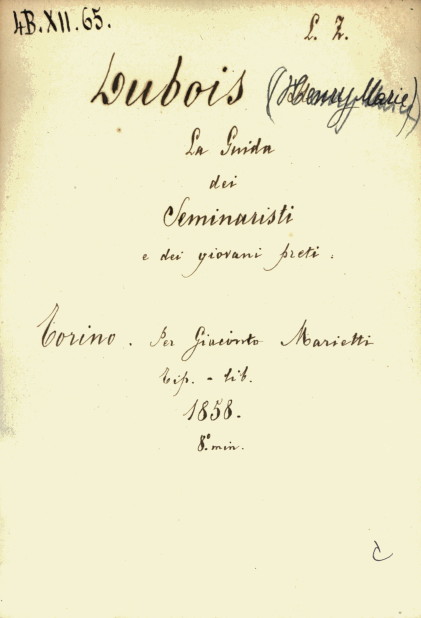 4B.XII.65.
L. Z.
Dubois (Henry Marie)
La Guida
dei
Seminaristi
e dei giovani preti.
Torino. Per Giacinto Marietti
Tip. - lib.
1858.
8.° min.